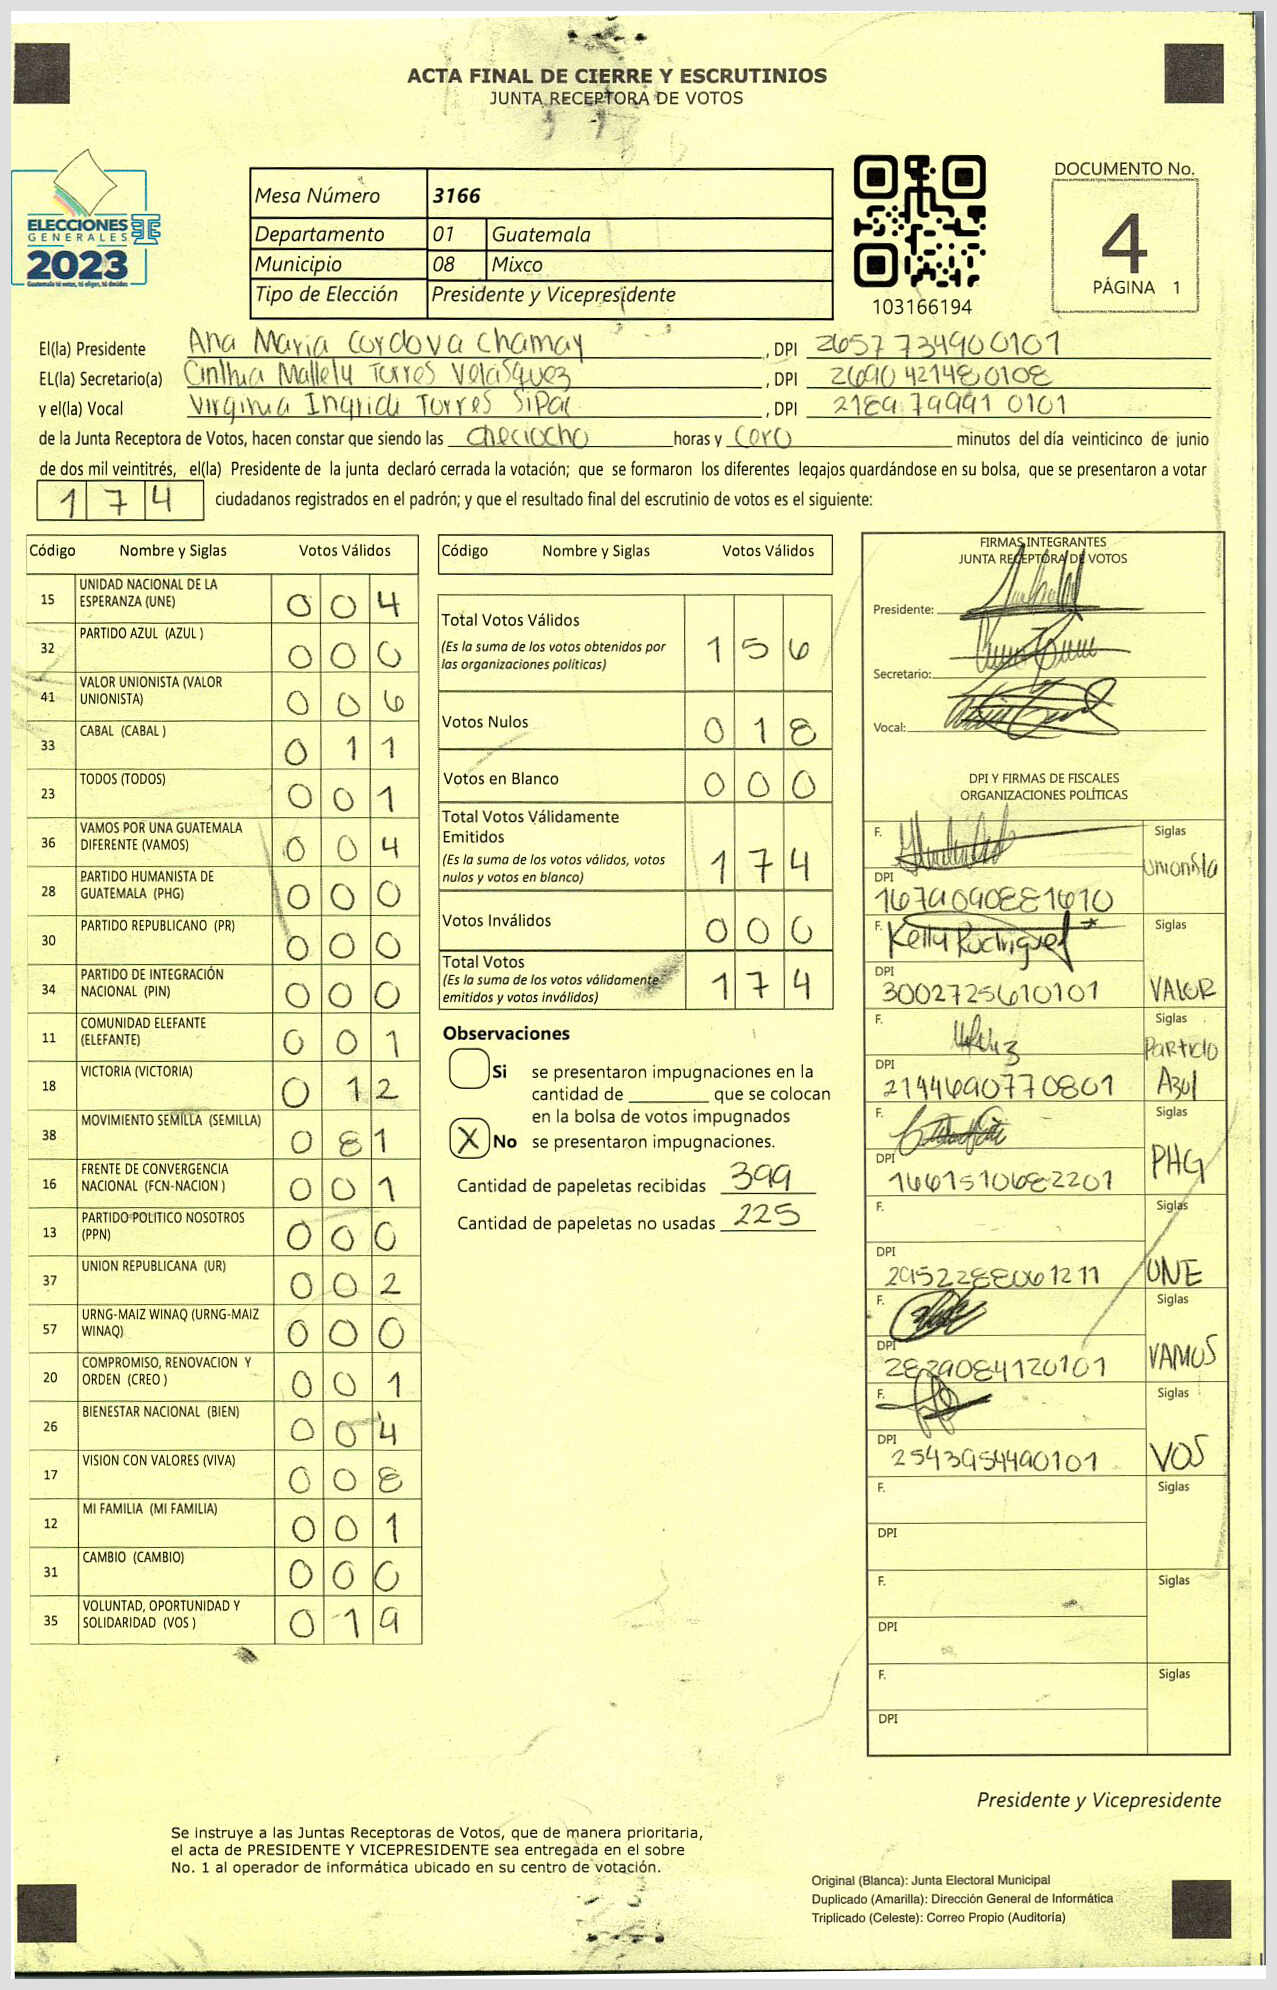 ACTA FINAL DE CIERRE Y ESCRUTINIOS
JUNTA RECEPTORA DE VOTOS
ELECCIONES
GENERALES
2023
Guatemala tú votas, tú eliges, tú decides
Mesa Número 3166
Departamento 01 Guatemala
Municipio 08 Mixco
Tipo de Elección Presidente y Vicepresidente
103166194
DOCUMENTO No.
4
PÁGINA 1
El(la) Presidente Ana Maria Cordova Chamay, DPI 2657 73490 0101
EL(la) Secretario(a) Cinthia Mallely Torres Velásquez, DPI 2690 42148 0108
y el(la) Vocal Virginia Ingrid Torres Sipac, DPI 2189 79991 0101
de la Junta Receptora de Votos, hacen constar que siendo las dieciocho horas y cero minutos del día veinticinco de junio
de dos mil veintitrés, el(la) Presidente de la junta declaró cerrada la votación; que se formaron los diferentes legajos guardándose en su bolsa, que se presentaron a votar
174 ciudadanos registrados en el padrón; y que el resultado final del escrutinio de votos es el siguiente:
Código Nombre y Siglas Votos Válidos
15 UNIDAD NACIONAL DE LA ESPERANZA (UNE) 004
32 PARTIDO AZUL (AZUL ) 000
41 VALOR UNIONISTA (VALOR UNIONISTA) 006
33 CABAL (CABAL ) 011
23 TODOS (TODOS) 001
36 VAMOS POR UNA GUATEMALA DIFERENTE (VAMOS) 004
28 PARTIDO HUMANISTA DE GUATEMALA (PHG) 000
30 PARTIDO REPUBLICANO (PR) 000
34 PARTIDO DE INTEGRACIÓN NACIONAL (PIN) 000
11 COMUNIDAD ELEFANTE (ELEFANTE) 001
18 VICTORIA (VICTORIA) 012
38 MOVIMIENTO SEMILLA (SEMILLA) 081
16 FRENTE DE CONVERGENCIA NACIONAL (FCN-NACION ) 001
13 PARTIDO POLITICO NOSOTROS (PPN) 000
37 UNION REPUBLICANA (UR) 002
57 URNG-MAIZ WINAQ (URNG-MAIZ WINAQ) 000
20 COMPROMISO, RENOVACION Y ORDEN (CREO ) 001
26 BIENESTAR NACIONAL (BIEN) 004
17 VISION CON VALORES (VIVA) 008
12 MI FAMILIA (MI FAMILIA) 001
31 CAMBIO (CAMBIO) 000
35 VOLUNTAD, OPORTUNIDAD Y SOLIDARIDAD (VOS ) 019
Código Nombre y Siglas Votos Válidos
Total Votos Válidos 156
(Es la suma de los votos obtenidos por
las organizaciones políticas)
Votos Nulos 018
Votos en Blanco 000
Total Votos Válidamente
Emitidos 174
(Es la suma de los votos válidos, votos
nulos y votos en blanco)
Votos Inválidos 000
Total Votos 174
(Es la suma de los votos válidamente
emitidos y votos inválidos)
Observaciones
Si se presentaron impugnaciones en la
cantidad de ________ que se colocan
en la bolsa de votos impugnados
X No se presentaron impugnaciones.
Cantidad de papeletas recibidas 399
Cantidad de papeletas no usadas 225
FIRMAS INTEGRANTES
JUNTA RECEPTORA DE VOTOS
Presidente:
Secretario:
Vocal:
DPI Y FIRMAS DE FISCALES
ORGANIZACIONES POLÍTICAS
F. Siglas Unionista
DPI 1679090881610
F. Kelly Rodriguez Siglas VALOR
DPI 3002725610101
F. Siglas Partido Azul
DPI 2144690770801
F. Siglas PHG
DPI 1661510682201
F. Siglas UNE
DPI 2952288061211
F. Siglas VAMOS
DPI 2829084120101
F. Siglas VOS
DPI 2543954490101
F. Siglas
DPI
F. Siglas
DPI
F. Siglas
DPI
Presidente y Vicepresidente
Se instruye a las Juntas Receptoras de Votos, que de manera prioritaria,
el acta de PRESIDENTE Y VICEPRESIDENTE sea entregada en el sobre
No. 1 al operador de informática ubicado en su centro de votación.
Original (Blanca): Junta Electoral Municipal
Duplicado (Amarilla): Dirección General de Informática
Triplicado (Celeste): Correo Propio (Auditoría)